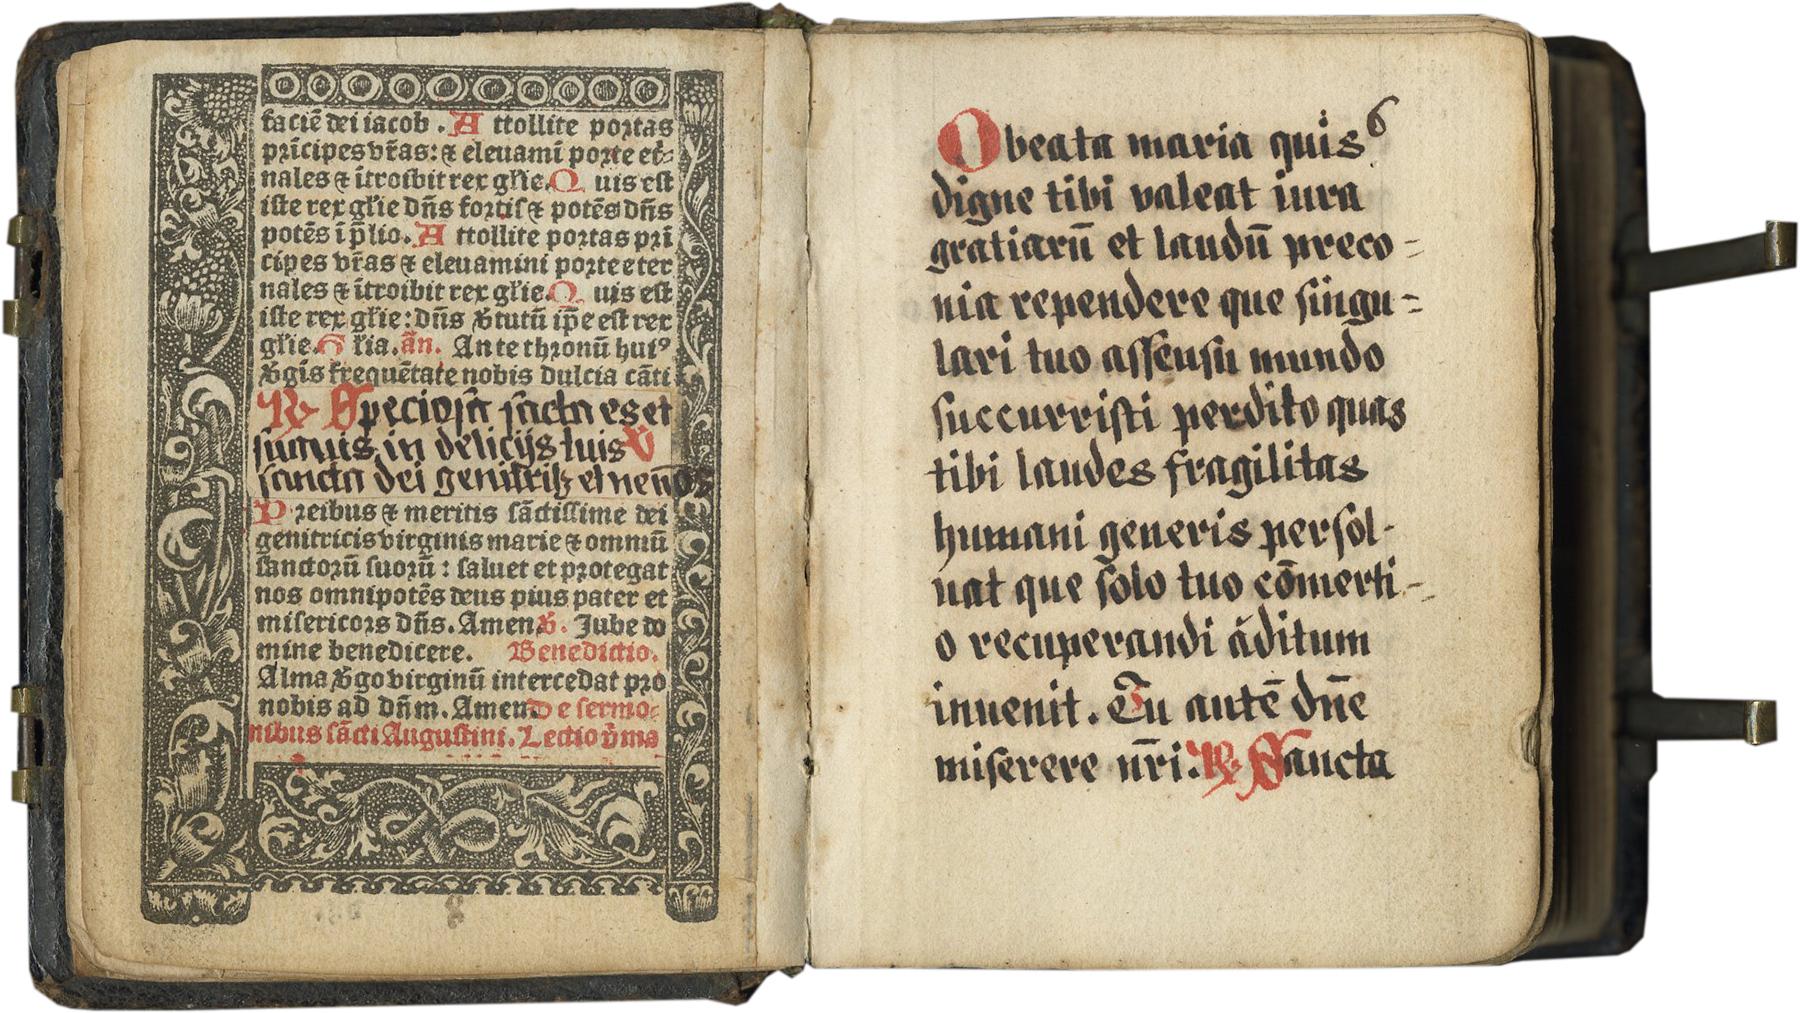 faciē dei iacob . Attollite portas
prīcipes vr̄as: ⁊ eleuami porte et̄-
nales ⁊ ītroibit rex gl̄ie. Quis est
iste rex gl̄ie dn̄s fortis ⁊ potēs dn̄s
potēs ī p̄lio. Attollite portas prī
cipes vr̄as ⁊ eleuamini porte eter
nales ⁊ ītroibit rex gl̄ie. Quis est
iste rex gl̄ie: dn̄s v̄tutū ip̄e est rex
gl̄ie. Gl̄ia. an̄. Ante thronū huiꝰ
v̄gis frequētate nobis dulcia cāti
℟ Speciosa facta es et
suauis in delicijs tuis ℣
sancta dei genitrix et nen̄os
Preibus ⁊ meritis sāctissime dei
genitricis virginis marie ⁊ omniū
sanctorū suorū : saluet et protegat
nos omnipotēs deus pius pater et
misericors dn̄s. Amen ℣. Jube do
mine benedicere. Benedictio.
Alma v̄go virginū intercedat pro
nobis ad dn̄m. Amen De sermo-
nibus sācti Augustini. Lectio p̄ma
6
O beata maria quis
digne tibi valeat iura
gratiarū et laudū preco-
nia rependere que singu-
lari tuo assensu mundo
succurristi perdito quas
tibi laudes fragilitas
humani generis persol-
uat que solo tuo cōmerti-
o recuperandi āditum
inuenit. Tu autē dn̄e
miserere nr̄i. ℟ Sancta